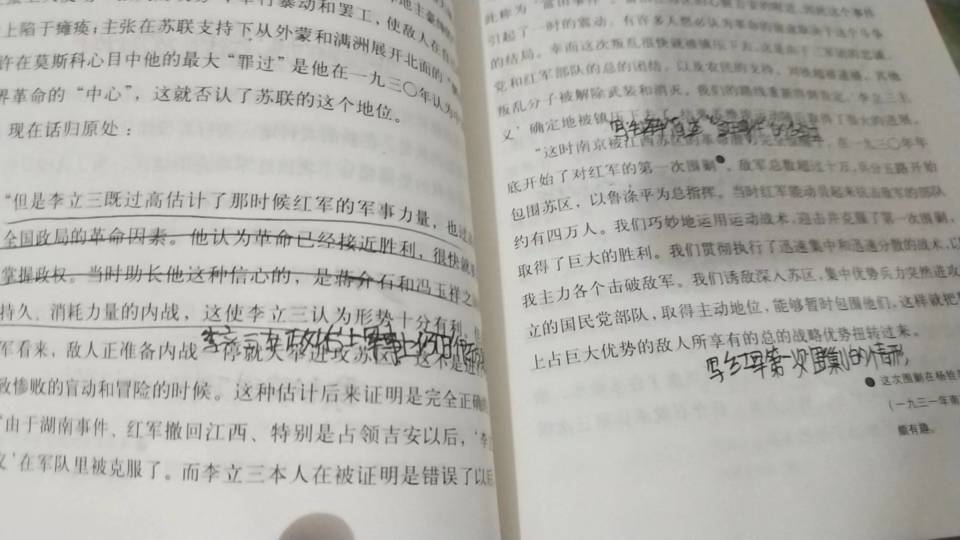 举行暴动和罢工，使敌人在
上陷于瘫痪；主张在苏联支持下从外蒙和满洲展开北面的
许在莫斯科心目中他的最大“罪过”是他在一九三〇年认为
界革命的“中心”，这就否认了苏联的这个地位。
现在话归原处：
“但是李立三既过高估计了那时候红军的军事力量，也过
全国政局的革命因素。他认为革命已经接近胜利，很快就
掌握政权。当时助长他这种信心的，是蒋介石和冯玉祥之
持久、消耗力量的内战，这使李立三认为形势十分有利。
李立三在政治上军事上
军看来，敌人正准备内战一停就大举进攻苏区，这不是进
致惨败的盲动和冒险的时候。这种估计后来证明是完全正确
“由于湖南事件、红军撤回江西、特别是占领吉安以后，‘李
义’在军队里被克服了。而李立三本人在被证明是错误了以后
此称为“富田事件”。
引起了一时的震动，有许多人
的结局。幸而这次叛乱很快就被镇压下去，这是由于三军团的忠诚、
党和红军部队的总的团结，以及农民的支持。刘铁超被逮捕，其他
叛乱分子被解除武装和消灭。我们的路线重新得到肯定，‘李立三主
义’确定地被镇压下去了，
取得了很大的进展。
“这时南京被江西苏区的革命
在一九三〇年年
底开始了对红军的第一次围剿❷。敌军总数超过十万，兵分五路开始
包围苏区，以鲁涤平为总指挥。当时红军能动员起来抗击敌军的部队
约有四万人。我们巧妙地运用运动战术，迎击并克服了第一次围剿，
取得了巨大的胜利。我们贯彻执行了迅速集中和迅速分散的战术，以
我主力各个击破敌军。我们诱敌深入苏区，集中优势兵力突然进攻
立的国民党部队，取得主动地位，能够暂时包围他们，这样就把
上占巨大优势的敌人所享有的总的战略优势扭转过来。
写红军第一次围剿的情形
❷ 这次围剿在杨
（一九三一年南
颇有趣。